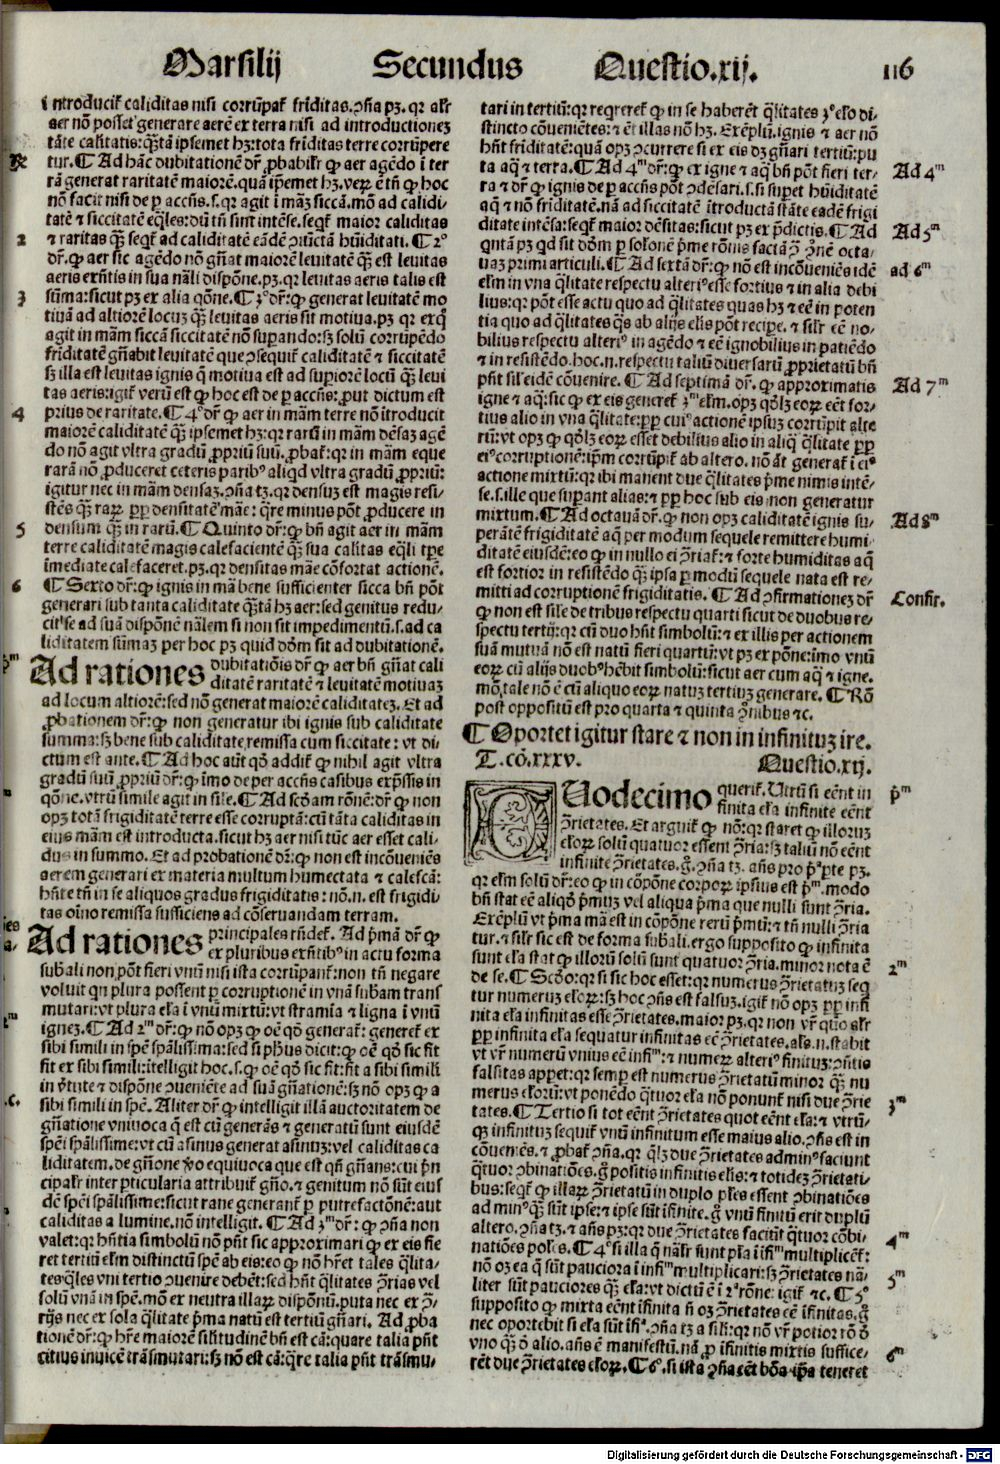 Marsilij Secundus Questio.xij. 116
introducit̉ caliditas nisi corrũpat̉ frĩditas.ꝯña pꝫ. qꝛ alr̃
aer nõ posset generare aerẽ ex terra nisi ad introductionez
tãte calitatis: quãta ipsemet hꝫ: tota frĩditas terre corrũpere
tur. ¶ Ad hãc dubitationẽ dr̃. ꝓbabilr̃ ꝙ aer agẽdo ĩ ter
rã generat raritatẽ maiorẽ. quã ip̃emet hꝫ. veꝝ ẽ tñ ꝙ hoc
nõ facit nisi de ꝑ accñs. s. qꝛ agit ĩ mãꝫ siccã. mõ ad calidi
tatẽ ⁊ siccitatẽ eq̃les: dũ tñ sint intẽse. seqt̉ maior caliditas
⁊ raritas qꝫ̃ seqt̉ ad caliditatẽ eãdẽ ꝯiũctã hũiditati. ¶ 2º
dr̃. ꝙ aer sic agẽdo nõ gñat maiorẽ leuitatẽ qꝫ̃ est leuitas
aeris exñtis in sua nãli dispõne. pꝫ. qꝛ leuitas aeris talis est
sũma: sicut pꝫ ex alia qõne. ¶ 3º dr̃: ꝙ generat leuitatẽ mo
tiuã ad altiorẽ locuꝫ qꝫ̃ leuitas aeris sit motiua. pꝫ qꝛ exq̃
agit in mãm siccã siccitatẽ nõ suꝑando: sꝫ solũ corrũpẽdo
friditatẽ gñabit leuitatẽ que ꝯsequit̉ caliditatẽ ⁊ siccitatẽ
sꝫ illa est leuitas ignis q̃ motiua est ad suꝑiorẽ locũ qꝫ̃ leui
tas aeris: igit̉ verũ est ꝙ hoc est de ꝑ accñs: ꝓut dictum est
prius de raritate. ¶ 4º dr̃ ꝙ aer in mãm terre nõ ĩtroducit
maiorẽ caliditatẽ qꝫ̃ ipsemet hꝫ: qꝛ rarũ in mãm dẽsaꝫ agẽ
do nõ agit vltra gradũ ꝓpriũ suũ. ꝓbat̉: qꝛ in mãm eque
rarã nõ ꝓduceret ceteris paribꝰ aliqd vltra gradũ ꝓpriũ:
igitur nec in mãm densaꝫ. ꝯña tꝫ. qꝛ densuꝫ est magis resi
stẽs qꝫ̃ raꝝ ꝓꝑ densitatẽ mãe: q̃re minus põt ꝓducere in
densum qꝫ̃ in rarũ. ¶ Quinto dr̃: ꝙ bñ agit aer in mãm
terre caliditatẽ magis calefacientẽ qꝫ̃ sua calitas eq̃li tꝑe
ĩmediate calefaceret. pꝫ. qꝛ densitas mãe cõfortat actionẽ.
¶ Sexto dr̃: ꝙ ignis in mã bene sufficienter sicca bñ põt
generari sub tanta caliditate qꝫ̃ta hꝫ aer: sed genitus redu
cit se ad suã dispõnẽ nãlem si non sit impedimentũ. s. ad ca
liditatem sũmaꝫ per hoc pꝫ quid dõm sit ad dubitationẽ.
Ad rationes dubitatiõis dr̃ ꝙ aer bñ gñat cali
ditatẽ raritatẽ ⁊ leuitatẽ motiuaꝫ
ad locum altiorẽ: sed nõ generat maiorẽ caliditateꝫ. Et ad
ꝓbationem dr̃: ꝙ non generatur ibi ignis sub caliditate
summa: sꝫ bene sub caliditate remissa cum siccitate: vt di
ctum est ante. ¶ Ad hoc aũt qõ addit̉ ꝙ nihil agit vltra
gradũ suũ ꝓpriũ dr̃: ꝙ ĩmo de per accñs casibus exp̃ssis in
qõne. vtrũ simile agit in sile. ¶ Ad scđam rõnẽ: dr̃: ꝙ non
opꝫ totã frigiditatẽ terre esse corruptã: cũ tãta caliditas in
eius mãm est introducta. sicut hꝫ aer nisi tũc aer esset cali
dus in summo. Et ad probationẽ dr̃: ꝙ non est incõueniẽs
aerem generari ex materia multum humectata ⁊ calefcã:
hñte tñ in se aliquos gradus frigiditatis: nõ. n. est frigidi
tas oĩno remissa sufficiens ad cõseruandam terram.
Ad rationes principales rñdet̉. Ad p̃mã dr̃ ꝙ
ex pluribus exñtibꝰ in actu forma
subãli non põt fieri vnũ nisi ista corrũpant̉: non tñ negare
voluit qn plura possent ꝑ corruptionẽ in vnã subam trans
mutari: vt plura ela ĩ vnũ mixtũ: vt stramĩa ⁊ ligna ĩ vnũ
igneꝫ. ¶ Ad 2ᵐ dr̃: ꝙ nõ opꝫ ꝙ oẽ qõ generat̉: generet̉ ex
sibi simili in spẽ sp̃alissima: sed si phus dicit: ꝙ oẽ qõ sic fit
fit ex sibi simili: ĩtelligit hoc. s. ꝙ oẽ qõ sic fit: fit a sibi simili
in v̉tute ⁊ dispõne ꝯueniẽte ad suã gñationẽ: sꝫ nõ opꝫ ꝙ a
sibi simili in spẽ. Aliter dr̃ ꝙ intelligit illã auctoritatem de
gñatione vniuoca q̃ est cũ generãs ⁊ generatũ sunt eiusdẽ
spẽi sp̃alissime: vt cũ asinus generat asinuꝫ: vel caliditas ca
liditatem. de gñone ꝟo equiuoca que est qñ gñans: cui p̃n
cipalr̃ inter ꝑticularia attribuit̉ gño. ⁊ genitum nõ sũt eius
dẽ spẽi sp̃alissime: sicut rane generant̉ ꝑ putrefactõnẽ: aut
caliditas a lumine. nõ intelligit. ¶ Ad 3ᵐ dr̃: ꝙ ꝯña non
valet: qꝛ hñtia simbolũ nõ pñt sic approximari ꝙ ex eis fie
ret tertiũ elm distinctũ spẽ ab eis: eo ꝙ nõ hr̃et tales q̃lita
tes q̃les vni tertio ꝯuenire debẽt: sed hñt q̃litates ꝯ̃rias vel
solũ vnã in spẽ. mõ ex neutra illaꝝ dispõnũ. puta nec ex ꝯ̃
rijs nec ex sola q̃litate p̃ma natũ est tertiũ gñari. Ad ꝓba
tionẽ dr̃: ꝙ hr̃e maiorẽ silitudinẽ bñ est cã: quare talia pñt
citius inuicẽ trãsmutari: sꝫ nõ est cã: q̃re talia pñt trãsmu
tari in tertiũ: qꝛ reqreret̉ ꝙ in se haberẽt q̃litates 3º elo di
stincto cõuenietes: ⁊ ẽt illas nõ hꝫ. Exẽplũ. ignis ⁊ aer nõ
hñt friditatẽ: quã opꝫ ꝯcurrere si ex eis dꝫ gñari tertiũ: pu
ta aq̃ ⁊ terra. ¶ Ad 4ᵐ dr̃: ꝙ ex igne ⁊ aq̃ bñ põt fieri ter
ra ⁊ dr̃ ꝙ ignis de ꝑ accñs põt ꝯdẽsari. s. si suꝑet hũiditatẽ
aq̃ ⁊ nõ friditatẽ. nã ad siccitatẽ ĩtroductã stãte eadẽ frigi
ditate intẽsa: seqt̉ maior dẽsitas: sicut pꝫ ex p̃dictis. ¶ Ad
qntã pꝫ qd sit dõm ꝑ solonẽ p̃me rõnis faciã ꝯ̃ ꝯ̃nẽ octa
uaꝫ primi articuli. ¶ Ad sextã dr̃: ꝙ nõ est incõueniẽs idẽ
elm in vna q̃litate respectu alterꝰ esse fortius ⁊ in alia debi
lius: qꝛ põt esse actu quo ad q̃litates quas hꝫ ⁊ eẽ in poten
tia quo ad q̃litates q̃s ab alijs elis põt recipe. ⁊ silr̃ eẽ no
bilius respectu alterꝰ in agẽdo ⁊ eẽ ignobilius in patiẽdo
⁊ in resistẽdo. hoc. n. respectu taliũ diuersarũ ꝓprietatũ bñ
pñt sil eidẽ cõuenire. ¶ Ad septimã dr̃. ꝙ approximatis
igne ⁊ aq̃: sic ꝙ ex eis generet̉ 3ᵐ elm. opꝫ qõlꝫ eoꝝ eẽt for
tius alio in vna q̃litate: ꝓꝑ cuiꝰ actionẽ ipsuꝫ corrũpit alte
rũ: vt opꝫ ꝙ qõlꝫ eoꝝ esset debilius alio in aliq̃ q̃litate ꝓꝑ
eiꝰ corruptionẽ: ip̃m corrũpit̉ ab altero. nõ ãt generat̉ ĩ eiꝰ
actione mixtũ: qꝛ ibi manent due q̃litates p̃me nimis intẽ
se. s. ille que suꝑant alias: ⁊ ꝓꝑ hoc sub eis non generatur
mixtum. ¶ Ad octauã dr̃. ꝙ non opꝫ caliditatẽ ignis su
perãtẽ frigiditatẽ aq̃ per modum sequele remittere humi
ditatẽ eiusdẽ: eo ꝙ in nullo ei ꝯ̃riat̉: ⁊ forte humiditas aq̃
est fortior in resistẽdo qꝫ̃ ipsa ꝑ modũ sequele nata est re
mitti ad corruptionẽ frigiditatis. ¶ Ad ꝯfirmationeꝫ dr̃
ꝙ non est sile de tribus respectu quarti sicut de duobus re
spectu tertij: qꝛ cũ duo hñt simbolũ: ⁊ ex illis per actionem
suã mutuã nõ est natũ fieri quartũ: vt pꝫ ex põne: ĩmo vnũ
eoꝝ cũ alijs duobꝰ hẽbit simbolũ: sicut aer cum aq̃ ⁊ igne.
mõ tale nõ ẽ cũ aliquo eoꝝ natuꝫ tertiuꝫ generare. ¶ Rõ
post oppositũ est pro quarta ⁊ quinta ꝯ̃nibus ⁊c.
¶ Oportet igitur stare ⁊ non in infinituꝫ ire.
T. cõ. xxxv. Questio. xij.
Duodecimo querit̉. Utrũ si eẽnt in
finita ela infinite eẽnt
ꝯ̃rietates. Et arguit̉ ꝙ nõ: qꝛ staret ꝙ illoruꝫ
eloꝝ solũ quatuor essent ꝯ̃ria: sꝫ taliũ nõ eẽnt
infinite ꝯ̃rietates. g̊. ꝯña tꝫ. añs pro p̃ᵃ ꝑte pꝫ.
qꝛ elm solũ dr̃: eo ꝙ in cõpõne corpoꝝ ipsius est p̃ᵐ. modo
bñ stat eẽ aliqõ p̃muꝫ vel aliqua p̃ma que nulli sunt ꝯ̃ria.
Exẽplũ vt p̃ma mã est in cõpõne rerũ p̃mũ: ⁊ tñ nulli ꝯ̃ria
tur. ⁊ silr̃ sic est de forma subãli. ergo supposito ꝙ infinita
sunt ela stat ꝙ illorũ solũ sunt quatuor ꝯ̃ria. minor nota ẽ
de se. ¶ Scđo: qꝛ si sic hoc esset: qꝛ numerus ꝯ̃rietatuꝫ seq
tur numeruꝫ eloꝝ: sꝫ hoc ꝯñs est falsuꝫ. igit̉ nõ opꝫ ꝑ infi
nita ela infinitas esse ꝯ̃rietates. maior pꝫ. qꝛ non vr̃ quõ alr̃
ꝓꝑ infinita ela sequatur infinitas eẽ ꝯ̃rietates. als. n. stabit
vt vr̃ numerũ vnius eẽ infiᵐ: ⁊ numeꝝ alterꝰ finituꝫ: ꝯñtis
falsitas appet: qꝛ semꝑ est numerus ꝯ̃rietatũ minor qꝫ̃ nu
merus eloꝝ: vt ponẽdo q̃tuor ela nõ ponunt̉ nisi due ꝯ̃rie
tates. ¶ Tertio si tot eẽnt ꝯ̃rietates quot eẽnt ela: ⁊ vtrũ
qꝫ infinituꝫ sequit̉ vnũ infinitum esse maius alio. ꝯñs est in
cõueniẽs. ⁊ ꝓbat̉ ꝯña. qꝛ qlꝫ due ꝯ̃rietates ad minꝰ faciunt
q̃tuor ꝯbinatiões. g̊ positis infinitis elis: ⁊ totideꝫ ꝯ̃rietati
bus: seqt̉ ꝙ illaꝝ ꝯ̃rietatũ in duplo ples essent ꝯbinatiões
ad minꝰ qꝫ̃ sũt ipse: ⁊ ipse sũt ĩfinite. g̊ vnũ finitũ erit duplũ
altero. ꝯña tꝫ. ⁊ añs pꝫ: qꝛ due ꝯ̃rietates faciũt q̃tuor cõbi
nationes ples. ¶ 4º si illa q̃ nãlr̃ sunt pla ĩ ifiᵐ multiplicẽt̉:
nõ oꝫ ea q̃ sũt pauciora ĩ infiᵐ multiplicari: sꝫ ꝯ̃rietates nã
liter sũt pauciores qꝫ̃ ela: vt dictũ ẽ ĩ 2ª rõne: igit̉ ⁊c. ¶ 5º
supposito ꝙ mixta eẽnt ĩfinita ñ oꝫ ꝯ̃rietates eẽ ĩfinitas. g̊
nec oportebit si ela sũt ĩfiᵗ. ꝯña tꝫ a sili: qꝛ nõ vr̃ potior rõ ð
vno qꝫ̃ ð alio. añs ẽ manifestũ. nã ꝓ ĩfinitis mixtis suffice
rẽt due ꝯ̃rietates eloꝝ. ¶ 6º. si ista ꝯña eẽt bõa ip̃a teneret
2
3
4
5
6
Ad 4ᵐ
Ad 5ᵐ
ad 6ᵐ
Ad 7ᵐ
Ad 8ᵐ
Confir.
p̃ᵐ
2ᵐ
3ᵐ
4ᵐ
5ᵐ
6ᵐ
Digitalisierung gefördert durch die Deutsche Forschungsgemeinschaft - DFG